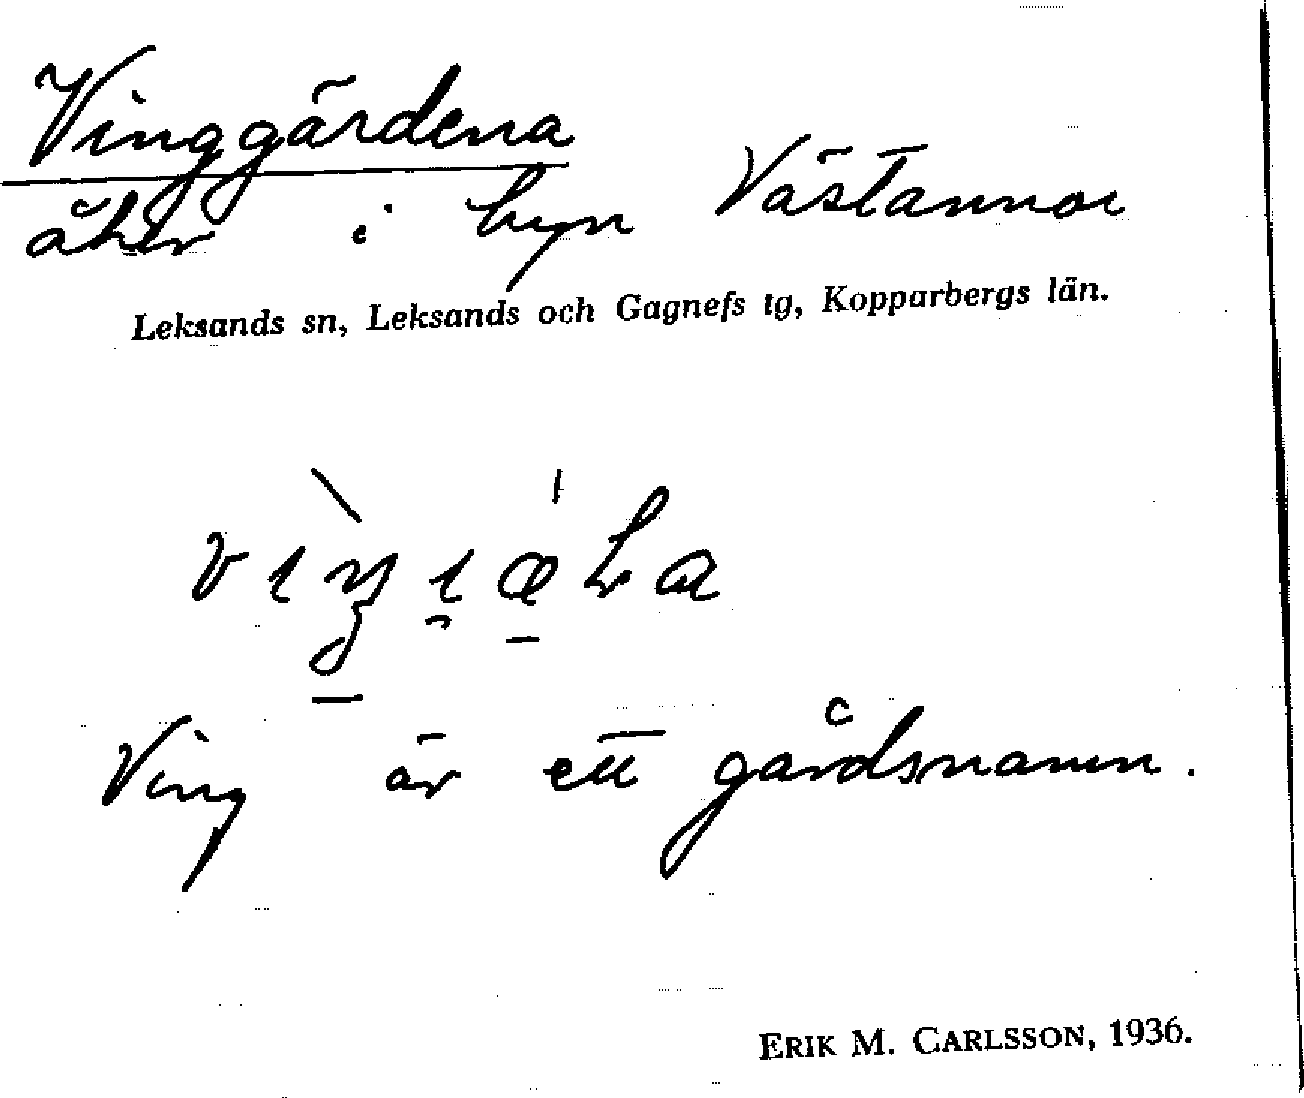 Vinggärdena
åker i byn Västannor
Leksands sn, Leksands och Gagnefs tg, Kopparbergs län.
Ving är ett gårdsnamn.
ERIK M. CARLSSON, 1936.